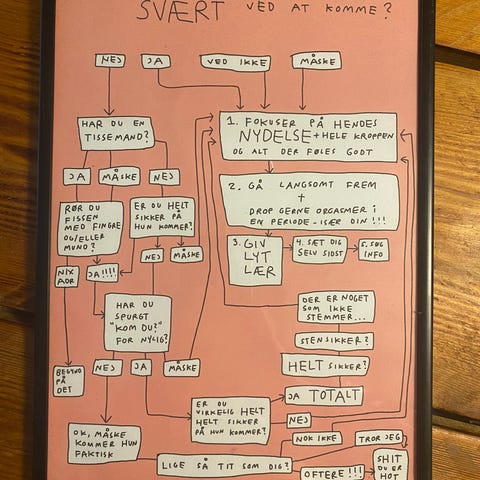 SVÆRT VED AT KOMME?
NEJ
JA
VED IKKE
MÅSKE
HAR DU EN
TISSEMAND?
1. FOKUSER PÅ HENDES
NYDELSE + HELE KROPPEN
OG ALT DER FØLES GODT
JA
MÅSKE
NEJ
2. GÅ LANGSOMT FREM
+
DROP GERNE ORGASMER I
EN PERIODE - ISÆR DIN!!!
RØR DU
FISSEN
MED FINGRE
OG/ELLER
MUND?
ER DU HELT
SIKKER PÅ
HUN KOMMER?
3. GIV
LYT
LÆR
4. SÆT DIG
SELV SIDST
5. SØG
INFO
NEJ
MÅSKE
NIX
ADR
JA!!!!
HAR DU
SPURGT
"KOM DU?"
FOR NYLIG?
DER ER NOGET
SOM IKKE
STEMMER...
STENSIKKER?
HELT SIKKER?
BEGYND
PÅ
DET
NEJ
JA
MÅSKE
JA TOTALT
ER DU
VIRKELIG HELT
HELT SIKKER
PÅ HUN KOMMER?
NEJ
OK, MÅSKE
KOMMER HUN
FAKTISK
NOK IKKE
TROR JEG
LIGE SÅ TIT SOM DIG?
OFTERE!!!
SHIT
DU ER
HOT